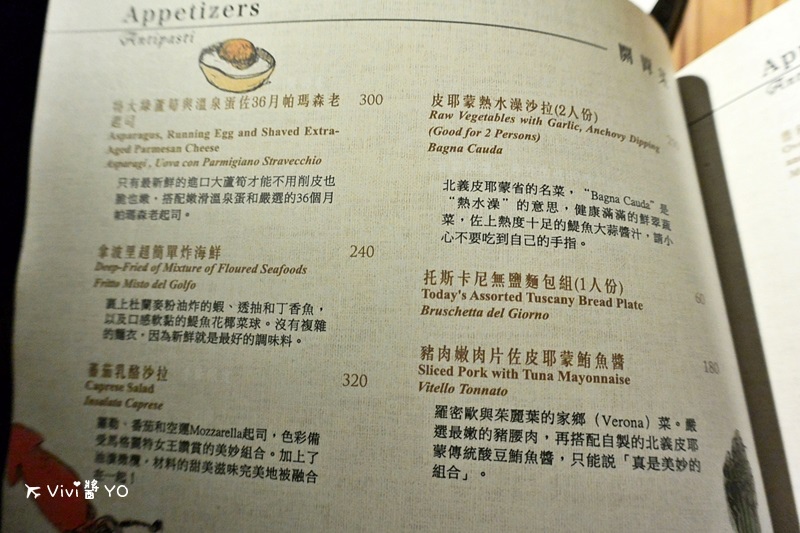 Appetizers
Antipasti
開胃菜
特大綠蘆筍與溫泉蛋佐36月帕瑪森老
起司
300
Asparagus, Running Egg and Shaved Extra-
Aged Parmesan Cheese
Asparagi , Uova con Parmigiano Stravecchio
只有最新鮮的進口大蘆筍才能不用削皮也
脆也嫩，搭配嫩滑溫泉蛋和嚴選的36個月
帕瑪森老起司。
拿波里超簡單炸海鮮
240
Deep-Fried of Mixture of Floured Seafoods
Fritto Misto del Golfo
裹上杜蘭麥粉油炸的蝦、透抽和丁香魚，
以及口感軟黏的鯷魚花椰菜球。沒有複雜
的麵衣，因為新鮮就是最好的調味料。
蕃茄乳酪沙拉
320
Caprese Salad
Insalata Caprese
羅勒、番茄和空運Mozzarella起司，色彩備
受馬格麗特女王讚賞的美妙組合。加上了
油漬橄欖，材料的甜美滋味完美地被融合
在一起！
皮耶蒙熱水澡沙拉(2人份)
Raw Vegetables with Garlic, Anchovy Dipping
(Good for 2 Persons)
Bagna Cauda
北義皮耶蒙省的名菜，“Bagna Cauda”是
“熱水澡”的意思，健康滿滿的鮮翠蔬
菜，佐上熱度十足的鯷魚大蒜醬汁，請小
心不要吃到自己的手指。
托斯卡尼無鹽麵包組(1人份)
60
Today's Assorted Tuscany Bread Plate
Bruschetta del Giorno
豬肉嫩肉片佐皮耶蒙鮪魚醬
180
Sliced Pork with Tuna Mayonnaise
Vitello Tonnato
羅密歐與茱麗葉的家鄉（Verona）菜。嚴
選最嫩的豬腰肉，再搭配自製的北義皮耶
蒙傳統酸豆鮪魚醬，只能說「真是美妙的
組合」。
Vivi醬 YO